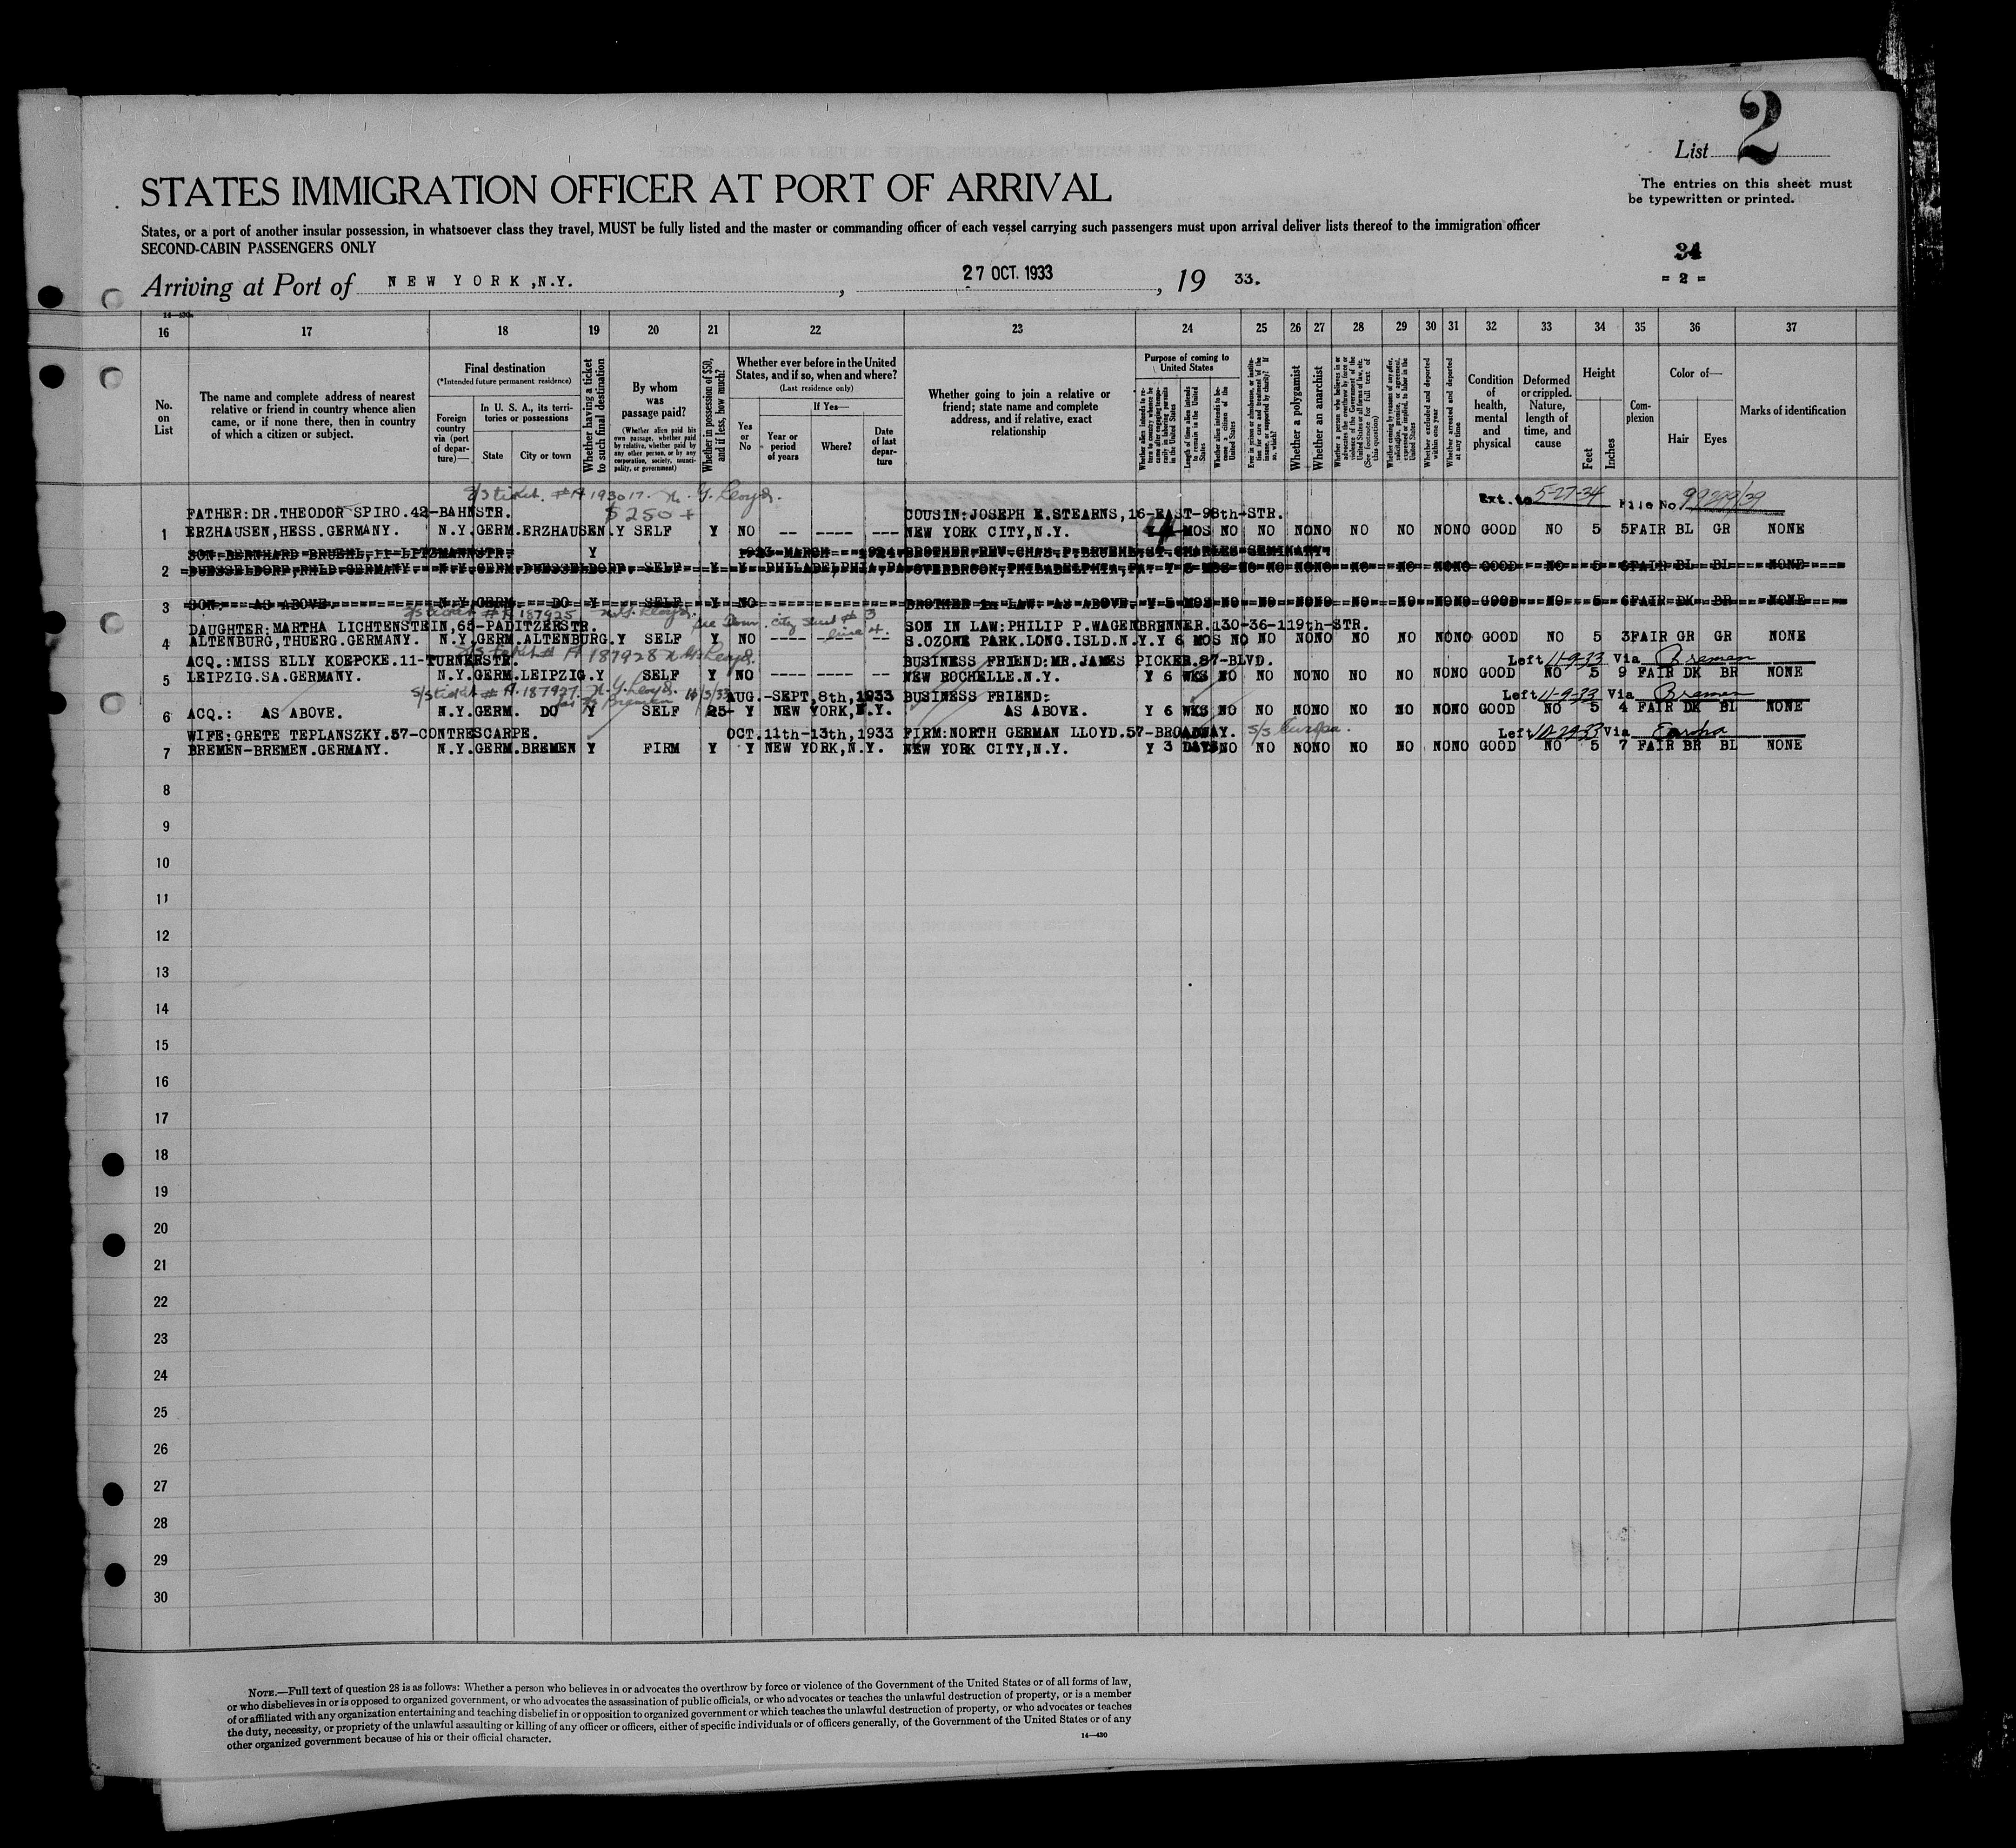 List 2
STATES IMMIGRATION OFFICER AT PORT OF ARRIVAL
The entries on this sheet must
be typewritten or printed.
States, or a port of another insular possession, in whatsoever class they travel, MUST be fully listed and the master or commanding officer of each vessel carrying such passengers must upon arrival deliver lists thereof to the immigration officer
SECOND-CABIN PASSENGERS ONLY
34
= 2 =
Arriving at Port of NEW YORK, N.Y., 27 OCT. 1933, 19 33.
14—430
16 17 18 19 20 21 22 23 24 25 26 27 28 29 30 31 32 33 34 35 36 37
No. on List
The name and complete address of nearest relative or friend in country whence alien came, or if none there, then in country of which a citizen or subject.
Final destination
(*Intended future permanent residence)
Foreign country via (port of departure)—
In U. S. A., its territories or possessions
State
City or town
Whether having a ticket to such final destination
By whom was passage paid?
(Whether alien paid his own passage, whether paid by relative, whether paid by any other person, or by any corporation, society, municipality, or government)
Whether in possession of $50, and if less, how much?
Whether ever before in the United States, and if so, when and where?
(Last residence only)
Yes or No
If Yes—
Year or period of years
Where?
Date of last departure
Whether going to join a relative or friend; state name and complete address, and if relative, exact relationship
Purpose of coming to United States
Whether alien intends to return to country whence he came after engaging temporarily in laboring pursuits in the United States
Length of time alien intends to remain in the United States
Whether alien intends to become a citizen of the United States
Ever in prison or almshouse, or institution for care and treatment of the insane, or supported by charity? If so, which?
Whether a polygamist
Whether an anarchist
Whether a person who believes in or advocates the overthrow by force or violence of the Government of the United States or all forms of law, etc. (See footnote for full text of this question)
Whether coming by reason of any offer, solicitation, promise, or agreement, expressed or implied, to labor in the United States
Whether excluded and deported within one year
Whether arrested and deported at any time
Condition of health, mental and physical
Deformed or crippled. Nature, length of time, and cause
Height
Feet
Inches
Complexion
Color of—
Hair
Eyes
Marks of identification
S/S ticket. #A 193017. N. G. Lloyd.
Ext. to 5-27-34 File No. 99299/39
FATHER:DR.THEODOR SPIRO.42-BAHNSTR. $250+ COUSIN:JOSEPH E.STEARNS,16-EAST-98th-STR.
1 ERZHAUSEN,HESS.GERMANY. N.Y.GERM.ERZHAUSEN.Y SELF Y NO -- ---- --- NEW YORK CITY,N.Y. MOS NO NO NONO NO NO NONO GOOD NO 5 5 FAIR BL GR NONE
SON:BERNHARD BRUEHL, LITZMANNSTR. Y 1923 MARCH 1924 BROTHER REV.CHAS.P.BRUEHL ST.CHARLES SEMINARY
2 DUESSELDORF,RHLD.GERMANY. N.Y.GERM.DUESSELDORF. SELF Y Y PHILADELPHIA,PA. OVERBROOK,PHILADELPHIA,PA. Y 5 MOS NO NO NONO NO NO NONO GOOD NO 5 6 FAIR BL BL NONE
3 SON: AS ABOVE. N.Y.GERM. DO Y SELF Y NO BROTHER in LAW: AS ABOVE. Y 5 MOS NO NO NONO NO NO NONO GOOD NO 5 6 FAIR DK BR NONE
S/S ticket # A 187925 N.G. Lloyd. see Down. city sheet # 3 line 4.
DAUGHTER:MARTHA LICHTENSTEIN,65-PADITZERSTR. SON IN LAW:PHILIP P.WAGENBRENNER.130-36-119th-STR.
4 ALTENBURG,THUERG.GERMANY. N.Y.GERM.ALTENBURG.Y SELF Y NO ---- ---- -- S.OZONE PARK.LONG.ISLD.N.Y.Y 6 MOS NO NO NONO NO NO NONO GOOD NO 5 3 FAIR GR GR NONE
S/S ticket # A 187928 N.G. Lloyd.
ACQ.:MISS ELLY KOEPCKE.11-TURNERSTR. BUSINESS FRIEND:MR.JAMES PICKER.87-BLVD. Left 11-9-33 Via Bremen
5 LEIPZIG.SA.GERMANY. N.Y.GERM.LEIPZIG.Y SELF Y NO ---- ---- -- NEW ROCHELLE.N.Y. Y 6 WKS NO NO NONO NO NO NONO GOOD NO 5 9 FAIR DK BR NONE
S/S ticket # A. 187927 N. G. Lloyd. for SS Bremen AUG.-SEPT,8th,1933 BUSINESS FRIEND: Left 11-9-33 Via Bremen
6 ACQ.: AS ABOVE. N.Y.GERM. DO Y SELF 25- Y NEW YORK,N.Y. AS ABOVE. Y 6 WKS NO NO NONO NO NO NONO GOOD NO 5 4 FAIR DK BL NONE
WIFE:GRETE TEPLANSZKY.57-CONTRESCARPE. OCT.11th-13th,1933 FIRM:NORTH GERMAN LLOYD.57-BROADWAY. S/S Europa. Left 10-29-33 Via Europa
7 BREMEN-BREMEN.GERMANY. N.Y.GERM.BREMEN Y FIRM Y Y NEW YORK,N.Y. NEW YORK CITY,N.Y. Y 3 DAYS NO NO NONO NO NO NONO GOOD NO 5 7 FAIR BR BL NONE
8
9
10
11
12
13
14
15
16
17
18
19
20
21
22
23
24
25
26
27
28
29
30
NOTE.—Full text of question 28 is as follows: Whether a person who believes in or advocates the overthrow by force or violence of the Government of the United States or of all forms of law,
or who disbelieves in or is opposed to organized government, or who advocates the assassination of public officials, or who advocates or teaches the unlawful destruction of property, or is a member
of or affiliated with any organization entertaining and teaching disbelief in or opposition to organized government or which teaches the unlawful destruction of property, or who advocates or teaches
the duty, necessity, or propriety of the unlawful assaulting or killing of any officer or officers, either of specific individuals or of officers generally, of the Government of the United States or of any
other organized government because of his or their official character.
14—430